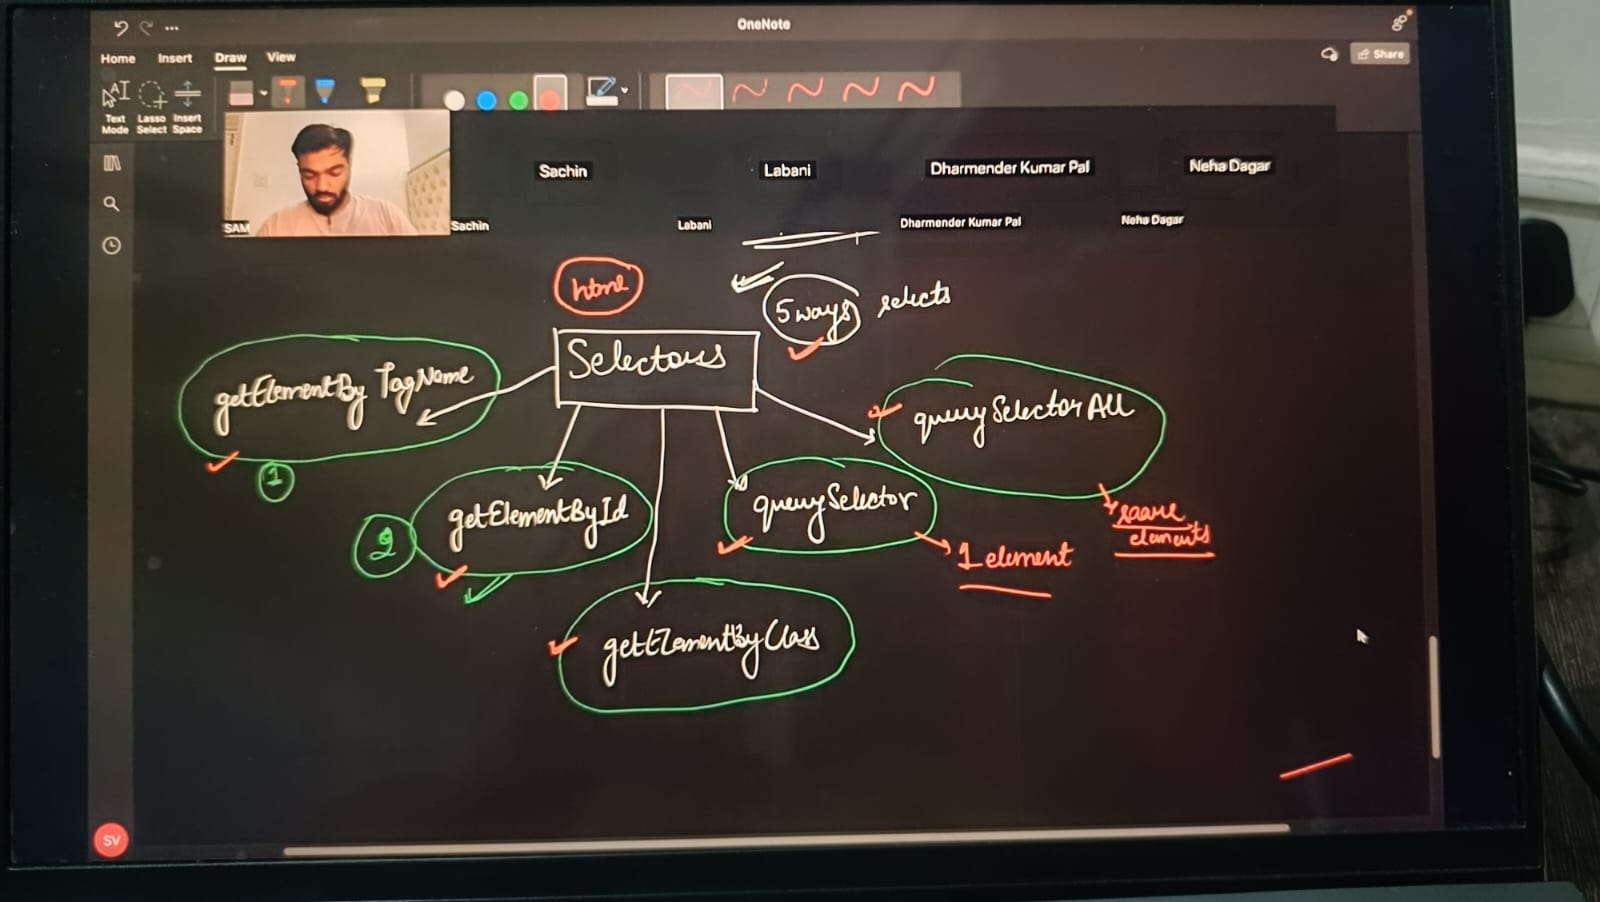 OneNote
Home Insert Draw View
Share
Text Mode
Lasso Select
Insert Space
Sachin Labani Dharmender Kumar Pal Neha Dagar
SAM Sachin Labani Dharmender Kumar Pal Neha Dagar
html
5 ways selects
Selectors
getElementBy TagName
1
querySelectorAll
saare
elements
2
getElementById
querySelector
1 element
getElementByClass
SV